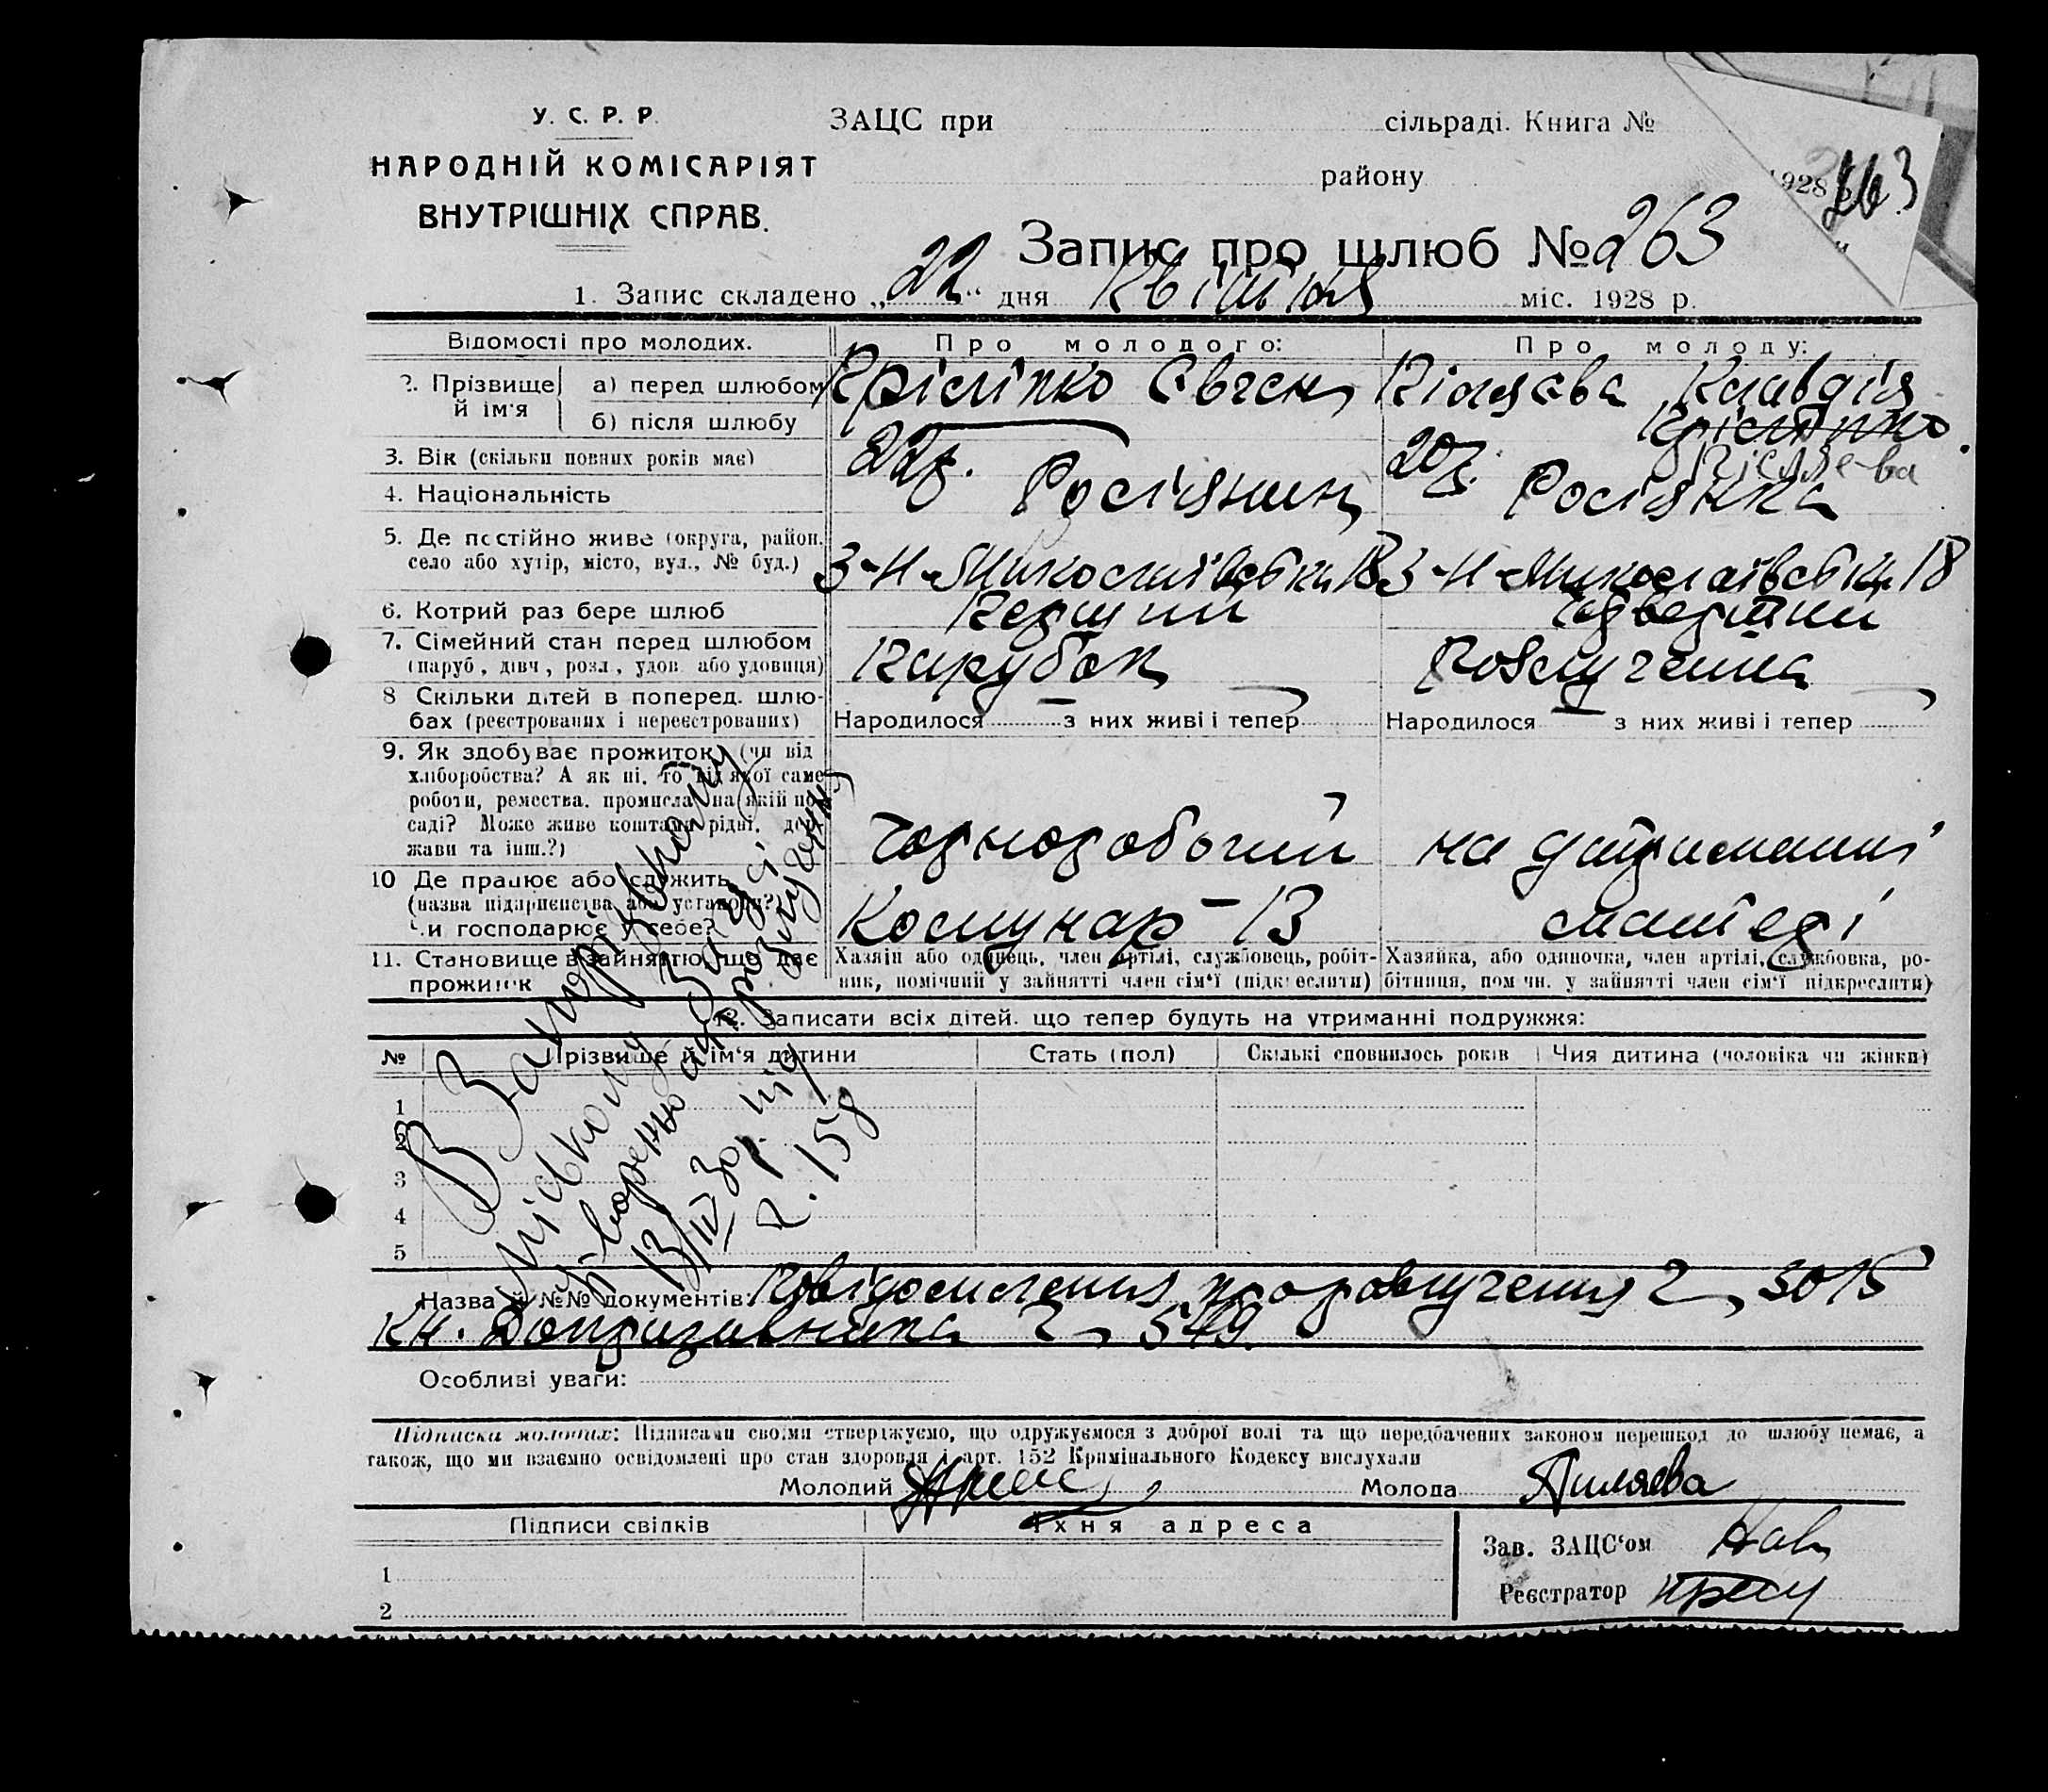 У. С. Р. Р.
НАРОДНІЙ КОМІСАРІЯТ
ВНУТРІШНІХ СПРАВ.
ЗАЦС при сільраді. Книга №
району
1928
263
Запис про шлюб № 263
1. Запис складено „22“ дня Квітня міс. 1928 р.
Відомості про молодих.
Про молодого:
Про молоду:
2. Прізвище й ім'я
а) перед шлюбом
Євген
Клавдія
б) після шлюбу
3. Вік (скільки повних років має)
22р.
20р.
4. Національність
Росіянин
Росіянка
5. Де постійно живе (округа, район,
село або хутір, місто, вул., № буд.)
3-Н-Миколаївська 18
3-Н-Миколаївська 18
6. Котрий раз бере шлюб
Перший
7. Сімейний стан перед шлюбом
(паруб., дівч., розл., удов. або удовиця)
Парубок
Розлучена
8 Скільки дітей в поперед. шлю-
бах (реєстрованих і нереєстрованих)
Народилося — з них живі і тепер
Народилося — з них живі і тепер
9. Як здобуває прожиток (чи від
хліборобства? А як ні, то від якої саме
роботи, ремества, промисла, на якій по-
саді? Може живе коштами рідні, дер-
жави та інш.?)
Чорноробочий
на утриманні
10 Де працює або служить
(назва підприємства або установи?)
Чи господарює у себе?
Комунар - 13
матері
11. Становище в зайняттю, що дає
прожиток
Хазяїн або одинець, член артілі, службовець, робіт-
ник, помічний у зайнятті член сім'ї (підкреслити)
Хазяйка, або одиночка, член артілі, службовка, ро-
бітниця, пом чн. у зайнятті член сім'ї підкреслити)
12. Записати всіх дітей, що тепер будуть на утриманні подружжя:
№
Прізвище й ім'я дитини
Стать (пол)
Скількі сповнилось років
Чия дитина (чоловіка чи жінки)
1
2
3
4
5
В Запорізькому
міському Загсі
розлучення
13/IV 30р. під
№ 158
Назва й №№ документів: Повідомлення про розлучення № 3015
Кн. Допризивника № 549.
Особливі уваги:
Підписка молодих: Підписами своїми стверджуємо, що одружуємося з доброї волі та що передбачених законом перешкод до шлюбу немає, а
також, що ми взаємно освідомлені про стан здоровля і арт. 152 Кримінального Кодексу вислухали
Молодий
Молода
Підписи свідків
Їхня адреса
1
2
Зав. ЗАЦС'ом
Реєстратор